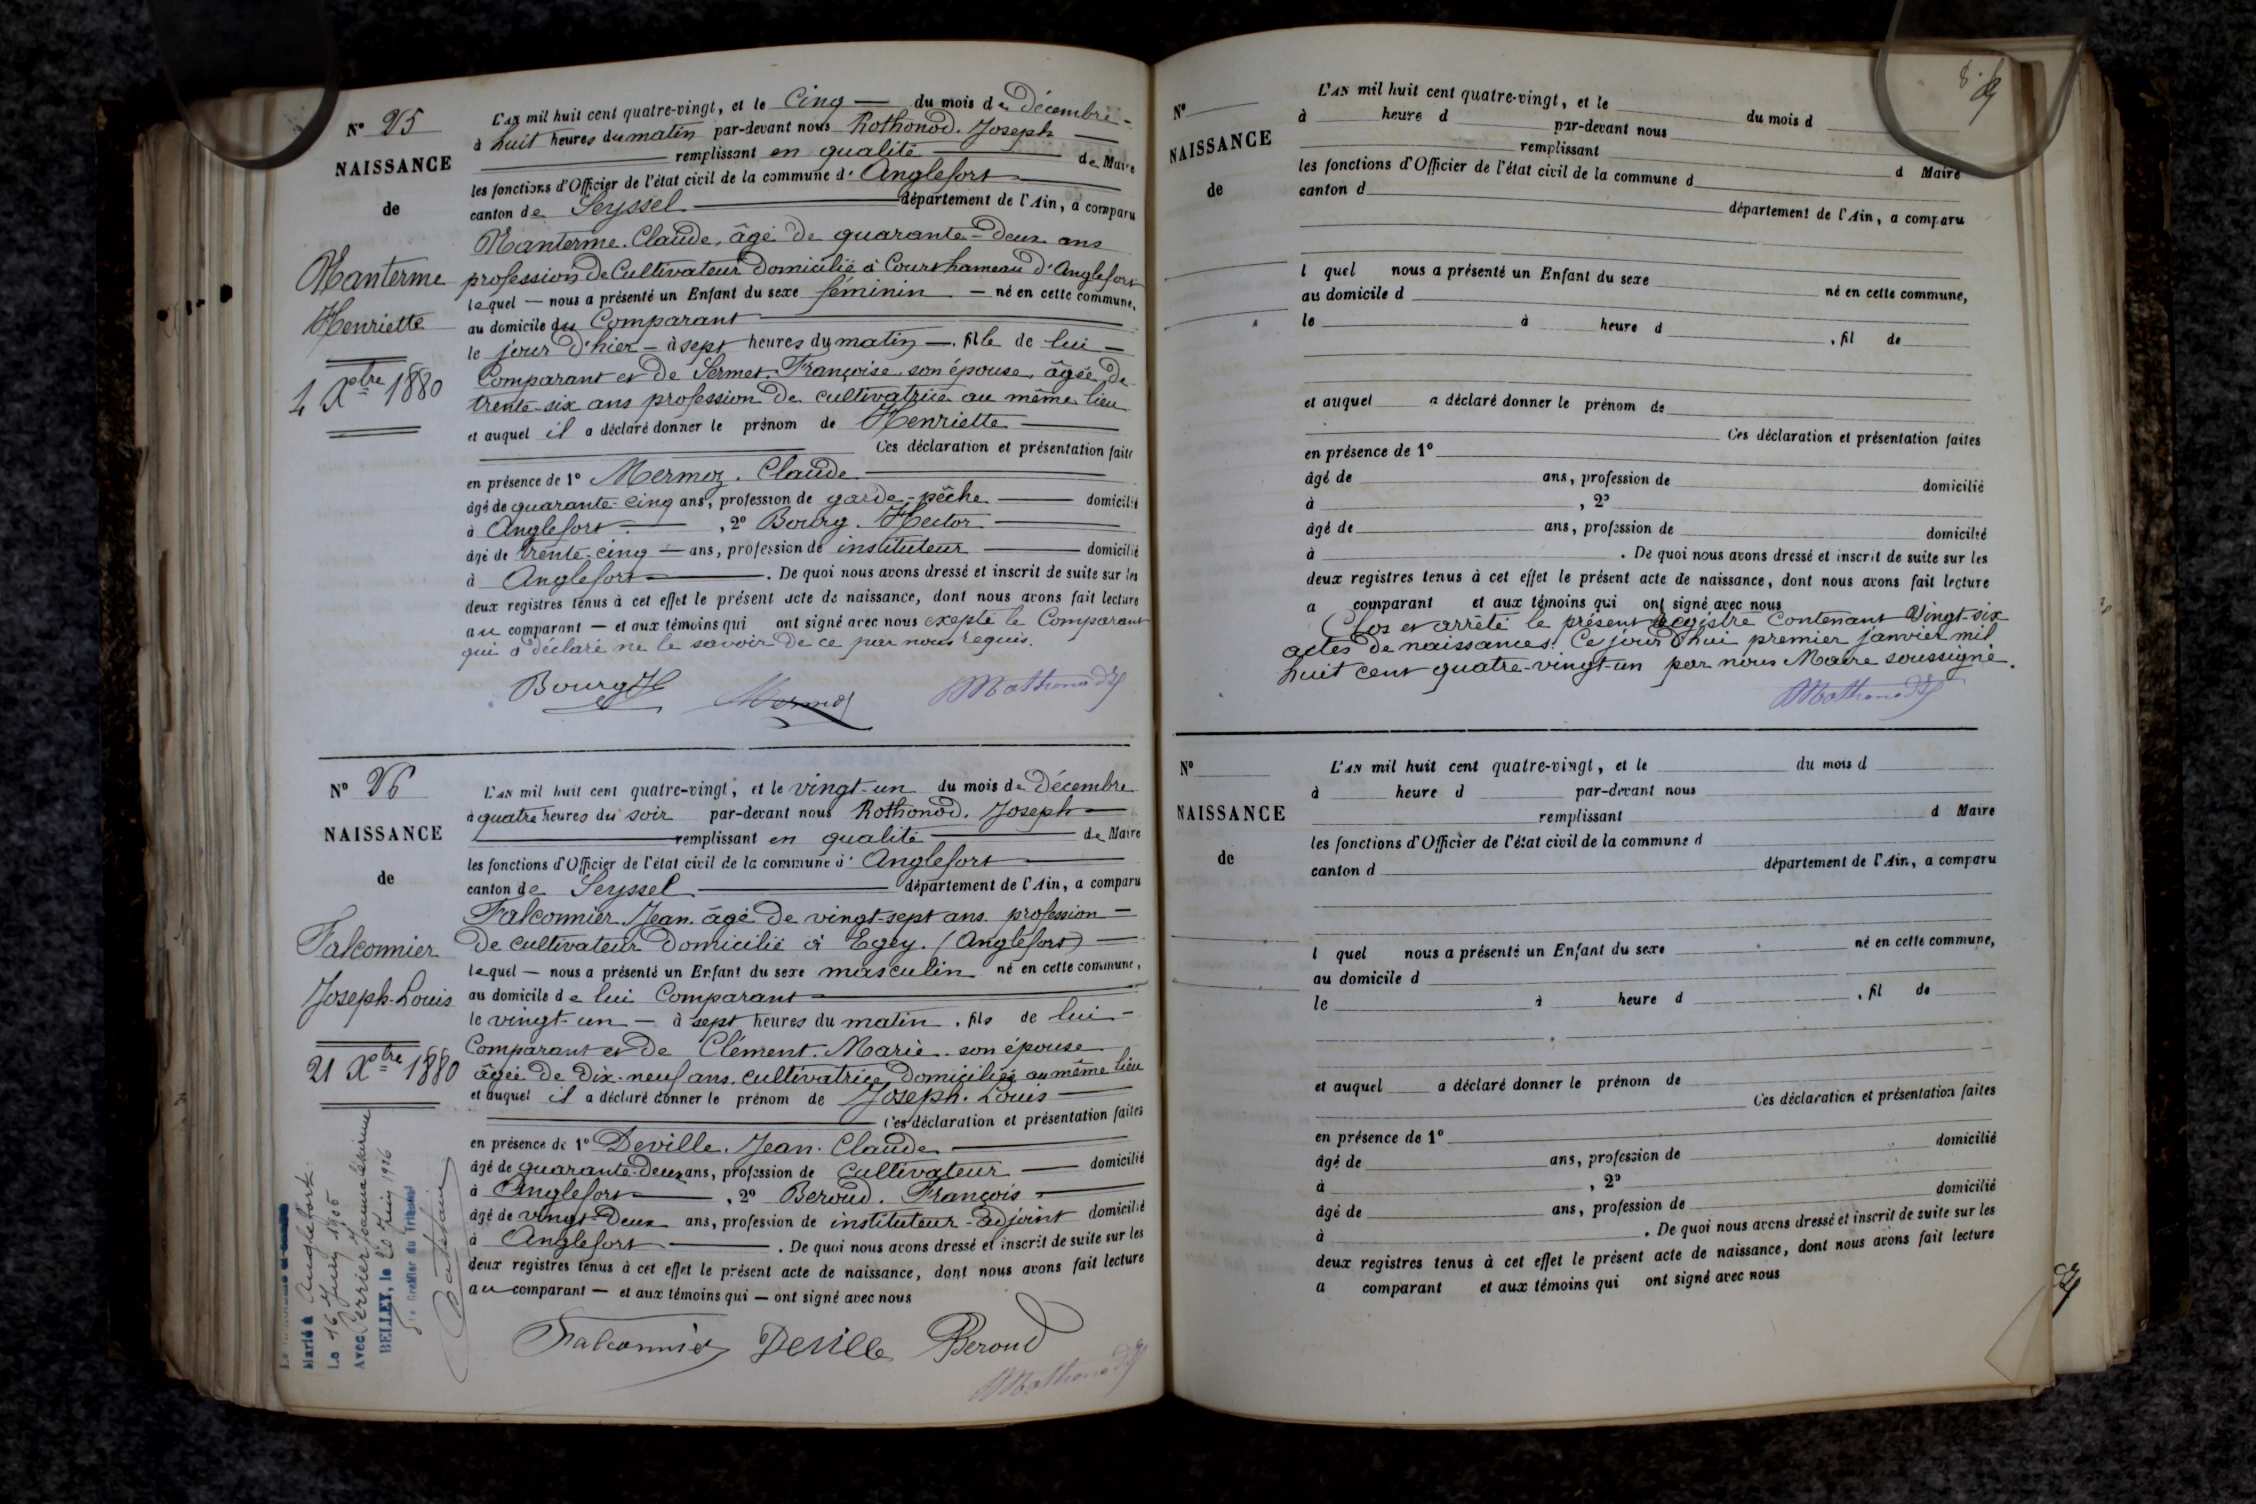 Nº 25
NAISSANCE
de
Manterme
Henriette
4 Xbre 1880
L'AN mil huit cent quatre-vingt, et le Cinq — du mois de Décembre -
à huit heures du matin par-devant nous Rothonod. Joseph —
— remplissant en qualité — de Maire
les fonctions d'Officier de l'état civil de la commune d' Anglefort —
canton de Seyssel — département de l'Ain, a comparu
Manterme. Claude, âgé de quarante-deux ans
profession de Cultivateur domicilié à Cours hameau d'Anglefort
lequel — nous a présenté un Enfant du sexe féminin — né en cette commune,
au domicile du Comparant —
le jour d'hier — à sept heures du matin —. fille de lui —
Comparant et de Sermet. Françoise son épouse, âgée de
trente-six ans profession de cultivatrice au même lieu
et auquel il a déclaré donner le prénom de Henriette —
Ces déclaration et présentation faite
en présence de 1º Mermoz. Claude —
âgé de quarante-cinq ans, profession de garde-pêche — domicilié
à Anglefort —, 2º Bourg. Hector —
âgé de trente-cinq — ans, profession de instituteur — domicilié
à Anglefort —. De quoi nous avons dressé et inscrit de suite sur les
deux registres tenus à cet effet le présent acte de naissance, dont nous avons fait lecture
au comparant — et aux témoins qui ont signé avec nous exepté le Comparant
qui a déclaré ne le savoir de ce par nous requis.
Bourg H Mermoz
Nº 26
NAISSANCE
de
Falconnier
Joseph-Louis
21 Xbre 1880
L'AN mil huit cent quatre-vingt, et le vingt-un du mois de Décembre
à quatre heures du soir par-devant nous Rothonod. Joseph —
— remplissant en qualité — de Maire
les fonctions d'Officier de l'état civil de la commune d' Anglefort —
canton de Seyssel — département de l'Ain, a comparu
Falconnier. Jean. âgé de vingt-sept ans. profession —
de cultivateur domicilié à Egey. (Anglefort) —
lequel — nous a présenté un Enfant du sexe masculin né en cette commune,
au domicile de lui Comparant —
le vingt-un — à sept heures du matin, fils de lui —
Comparant et de Clément. Marie. son épouse
âgée de dix-neuf ans. cultivatrice, domiciliée au même lieu
et auquel il a déclaré donner le prénom de Joseph. Louis —
Ces déclaration et présentation faites
en présence de 1º Deville. Jean. Claude —
âgé de quarante-deux ans, profession de Cultivateur — domicilié
à Anglefort —, 2º Beroud. François —
âgé de vingt-deux ans, profession de instituteur-adjoint domicilié
à Anglefort —. De quoi nous avons dressé et inscrit de suite sur les
deux registres tenus à cet effet le présent acte de naissance, dont nous avons fait lecture
au comparant — et aux témoins qui — ont signé avec nous
Falconnier Deville Beroud
Marié à Anglefort
Le 16 Juin 1906
Avec Perrier Joanna
BELLEY, le 20 Juin 1926
Le Greffier du Tribunal
8
Nº
NAISSANCE
de
L'AN mil huit cent quatre-vingt, et le du mois d
à heure d par-devant nous
remplissant d Maire
les fonctions d'Officier de l'état civil de la commune d
canton d département de l'Ain, a comparu
l quel nous a présenté un Enfant du sexe né en cette commune,
au domicile d
le à heure d , fil de
et auquel a déclaré donner le prénom de
Ces déclaration et présentation faites
en présence de 1º
âgé de ans, profession de domicilié
à , 2º
âgé de ans, profession de domicilié
à . De quoi nous avons dressé et inscrit de suite sur les
deux registres tenus à cet effet le présent acte de naissance, dont nous avons fait lecture
a comparant et aux témoins qui ont signé avec nous
Clos et arrêté le présent Registre contenant Vingt-six
actes de naissances. Ce jour d'hui premier janvier mil
huit cent quatre-vingt-un par nous Maire soussigné.
Nº
NAISSANCE
de
L'AN mil huit cent quatre-vingt, et le du mois d
à heure d par-devant nous
remplissant d Maire
les fonctions d'Officier de l'état civil de la commune d
canton d département de l'Ain, a comparu
l quel nous a présenté un Enfant du sexe né en cette commune,
au domicile d
le à heure d , fil de
et auquel a déclaré donner le prénom de
Ces déclaration et présentation faites
en présence de 1º
âgé de ans, profession de domicilié
à , 2º
âgé de ans, profession de domicilié
à . De quoi nous avons dressé et inscrit de suite sur les
deux registres tenus à cet effet le présent acte de naissance, dont nous avons fait lecture
a comparant et aux témoins qui ont signé avec nous